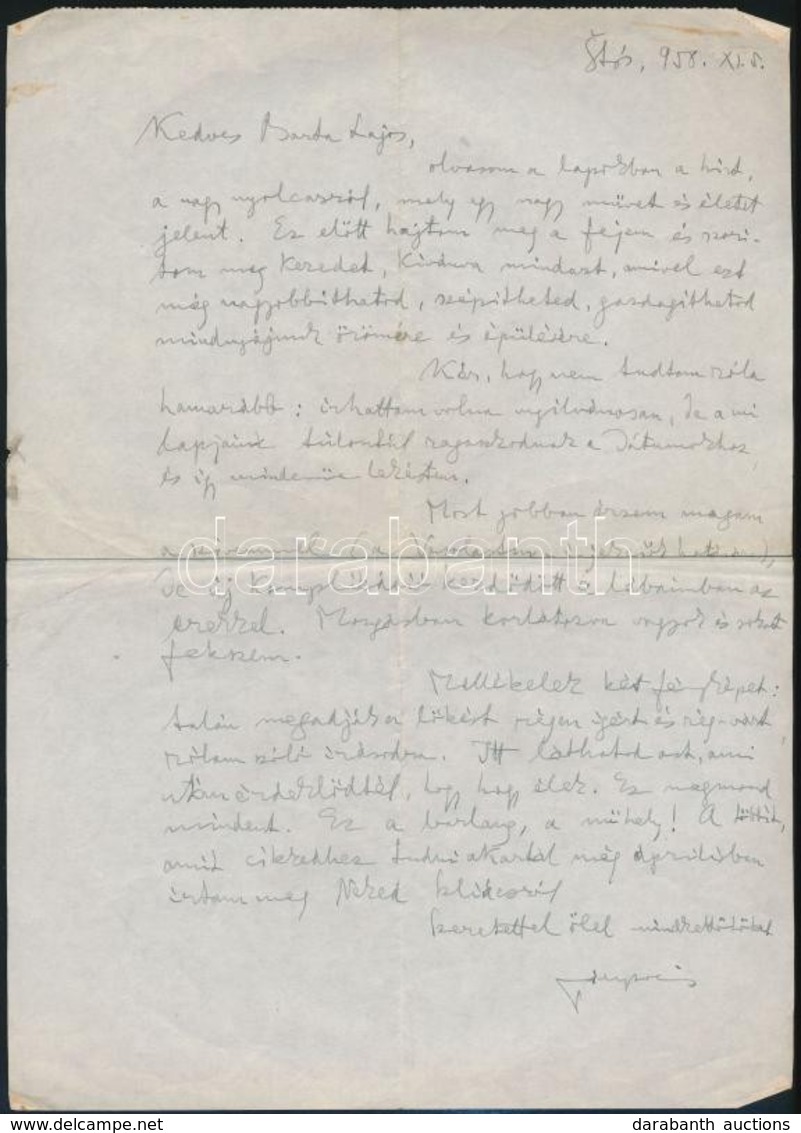 Štós, 958. XI. 5.
Kedves Barta Lajos,
olvasom a lapokban a hírt,
a nagy nyolcasról, mely egy nagy művet és életet
jelent. Ez előtt hajtom meg a fejem és szorí-
tom meg kezedet, kívánva mindazt, amivel ezt
még nagyobbíthatod, szépítheted, gazdagíthatod
mindnyájunk örömére és épülésére.
Kár, hogy nem tudtam róla
hamarább: írhattam volna nyilvánosan, de a mi
lapjaink túlontúl ragaszkodnak a dátumokhoz
és így mindenütt lekéstem.
Most jobban érzem magam
a szívemmel
de új komplikáció kezdődött a lábaimban az
erekkel. Mozgásban korlátozva vagyok és sokat
fekszem.
Mellékelek két fényképet:
talán megadják a lökést régen ígért és rég-várt
rólam szóló írásodra. Itt láthatod azt, ami
után érdeklődtél, hogy hogy élek. Ez megmond
mindent. Ez a barlang, a műhely! A többit,
amit cikkedhez tudni akartál még áprilisban
írtam meg Neked
Szeretettel ölel mindkettőtöket
darabanth
darabanth auctions